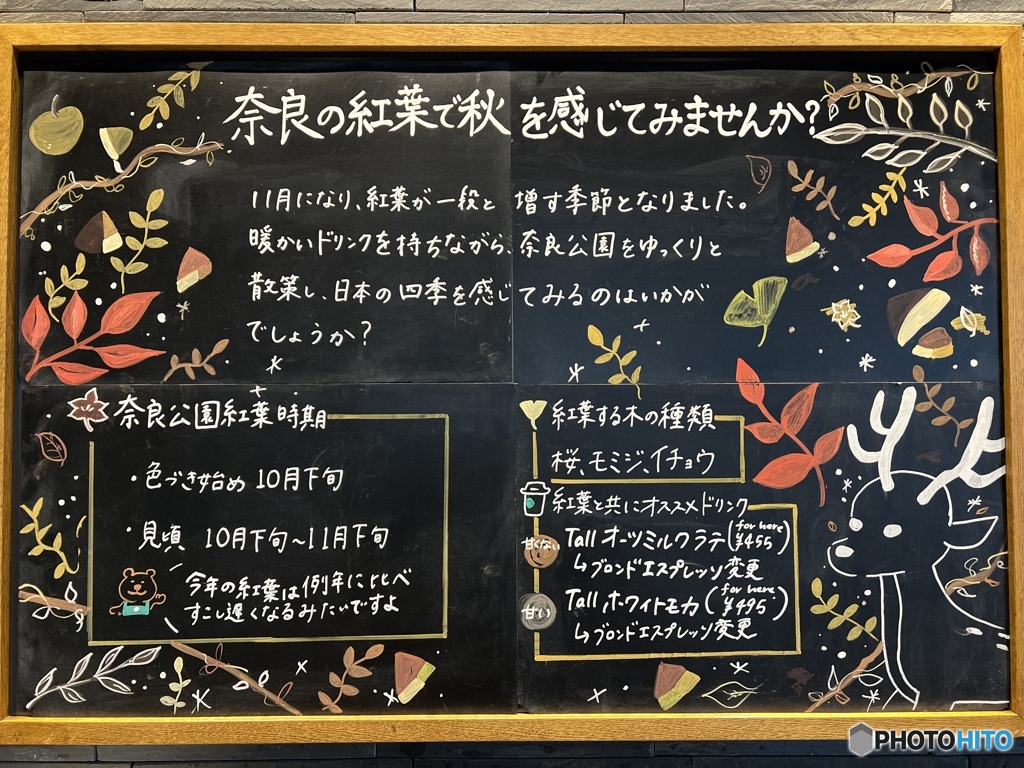 奈良の紅葉で秋を感じてみませんか?
11月になり、紅葉が一段と増す季節となりました。
暖かいドリンクを持ちながら、奈良公園をゆっくりと
散策し、日本の四季を感じてみるのはいかが
でしょうか?
奈良公園紅葉時期
・色づき始め 10月下旬
・見頃 10月下旬~11月下旬
今年の紅葉は例年に比べ
すこし遅くなるみたいですよ
紅葉する木の種類
桜、モミジ、イチョウ
紅葉と共にオススメドリンク
甘くない Tall オーツミルクラテ (for here ¥455)
↳ブロンドエスプレッソ変更
甘い Tall ホワイトモカ (for here ¥495)
↳ブロンドエスプレッソ変更
PHOTOHITO